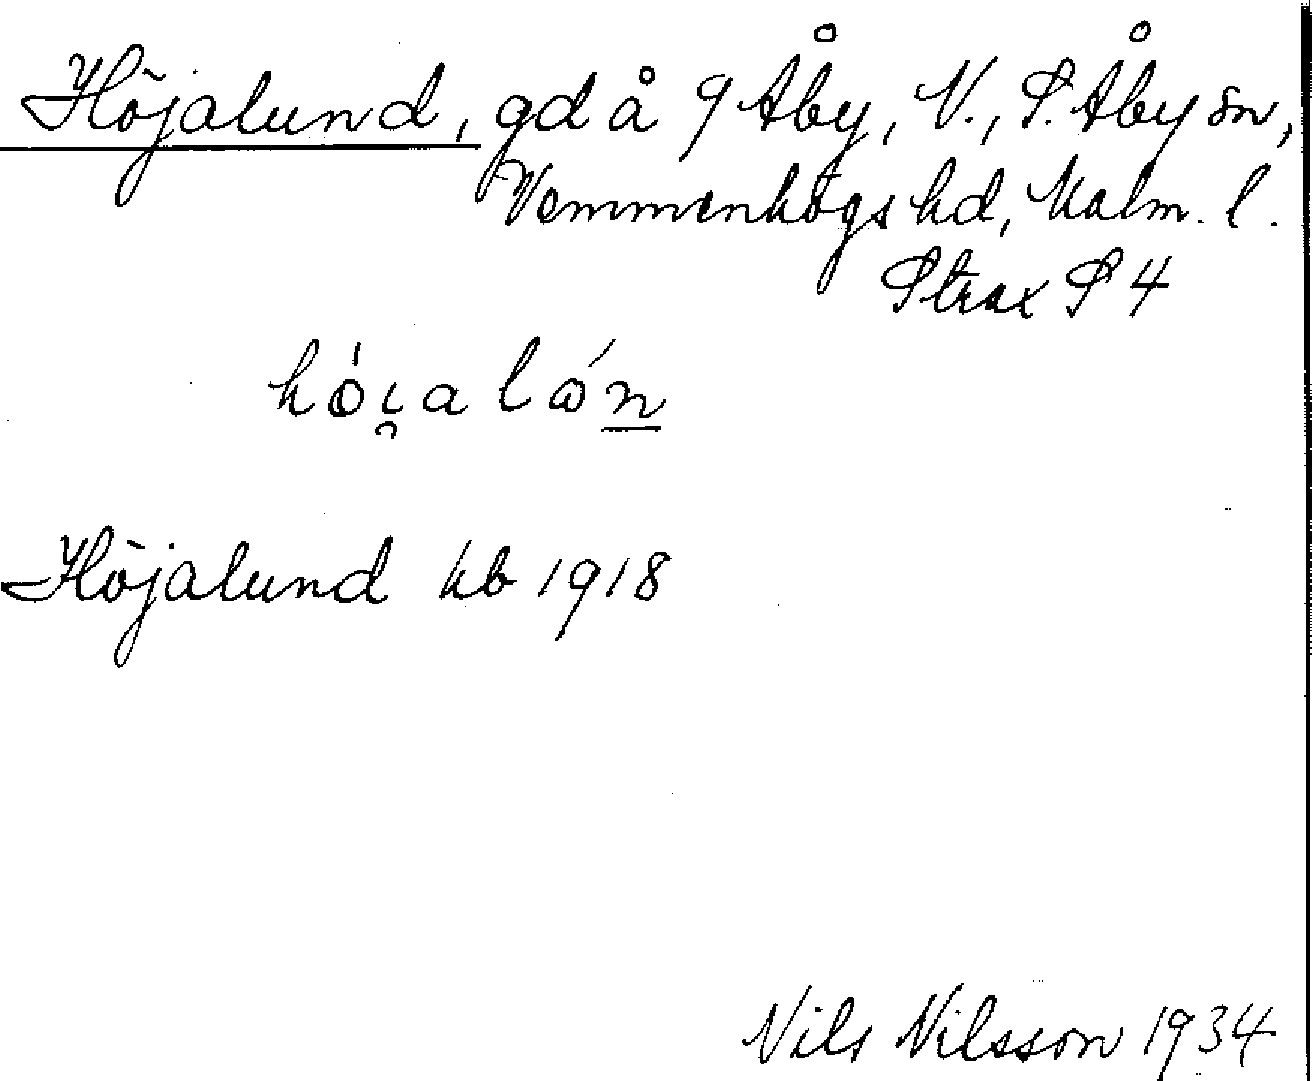 Höjalund, gd å 9 Åby, V., S. Åby sn,
Vemmenhögs hd, Malm. l.
Strax S 4
hǫ́i̯alón
Höjalund kb 1918
Nils Nilsson 1934